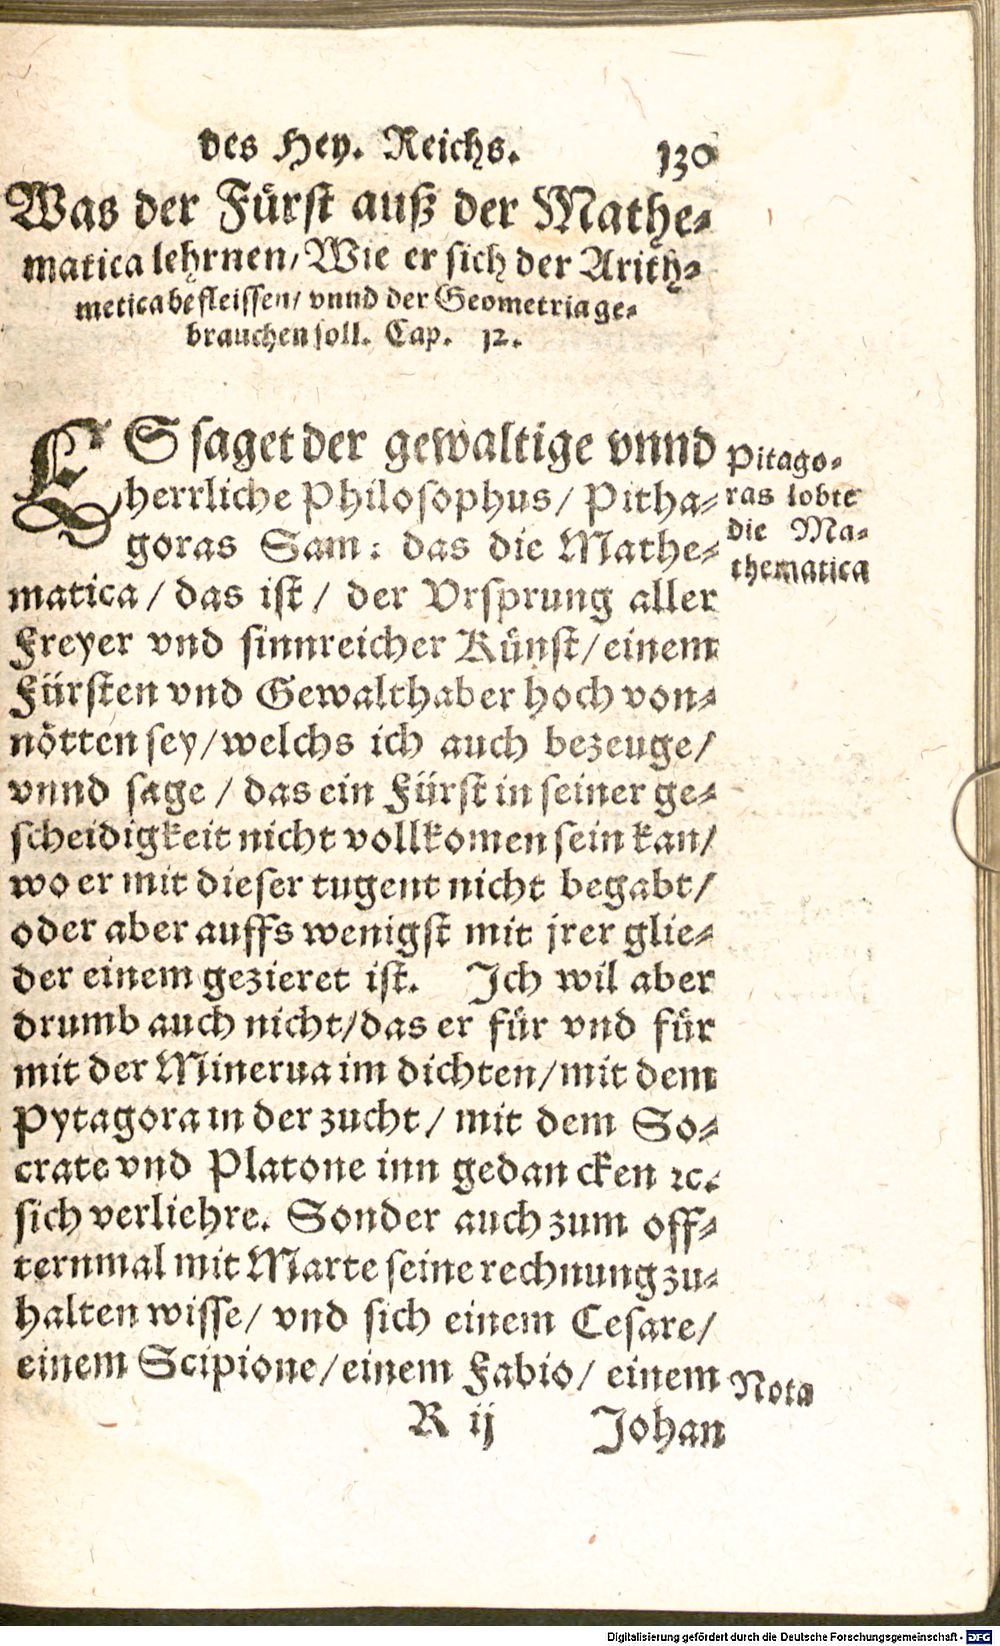 des Hey. Reichs. 130
Was der Fürst auß der Mathe-
matica lehrnen/ Wie er sich der Arith-
metica befleissen/ vnnd der Geometria ge-
brauchen soll. Cap. 12.
ES saget der gewaltige vnnd
herrliche Philosophus/ Pitha-
goras Sam: das die Mathe-
matica/ das ist/ der Vrsprung aller
Freyer vnd sinnreicher Künst/ einem
Fürsten vnd Gewalthaber hoch von-
nötten sey/ welchs ich auch bezeuge/
vnnd sage/ das ein Fürst in seiner ge-
scheidigkeit nicht vollkomen sein kan/
wo er mit dieser tugent nicht begabt/
oder aber auffs wenigst mit jrer glie-
der einem gezieret ist. Ich wil aber
drumb auch nicht/ das er für vnd für
mit der Minerua im dichten/ mit dem
Pytagora in der zucht/ mit dem So-
crate vnd Platone inn gedancken ꝛc.
sich verliehre. Sonder auch zum off-
ternmal mit Marte seine rechnung zu-
halten wisse/ vnd sich einem Cesare/
einem Scipione/ einem Fabio/ einem
R ij Johan
Pitago-
ras lobte
die Ma-
thematica
Nota
Digitalisierung gefördert durch die Deutsche Forschungsgemeinschaft - DFG